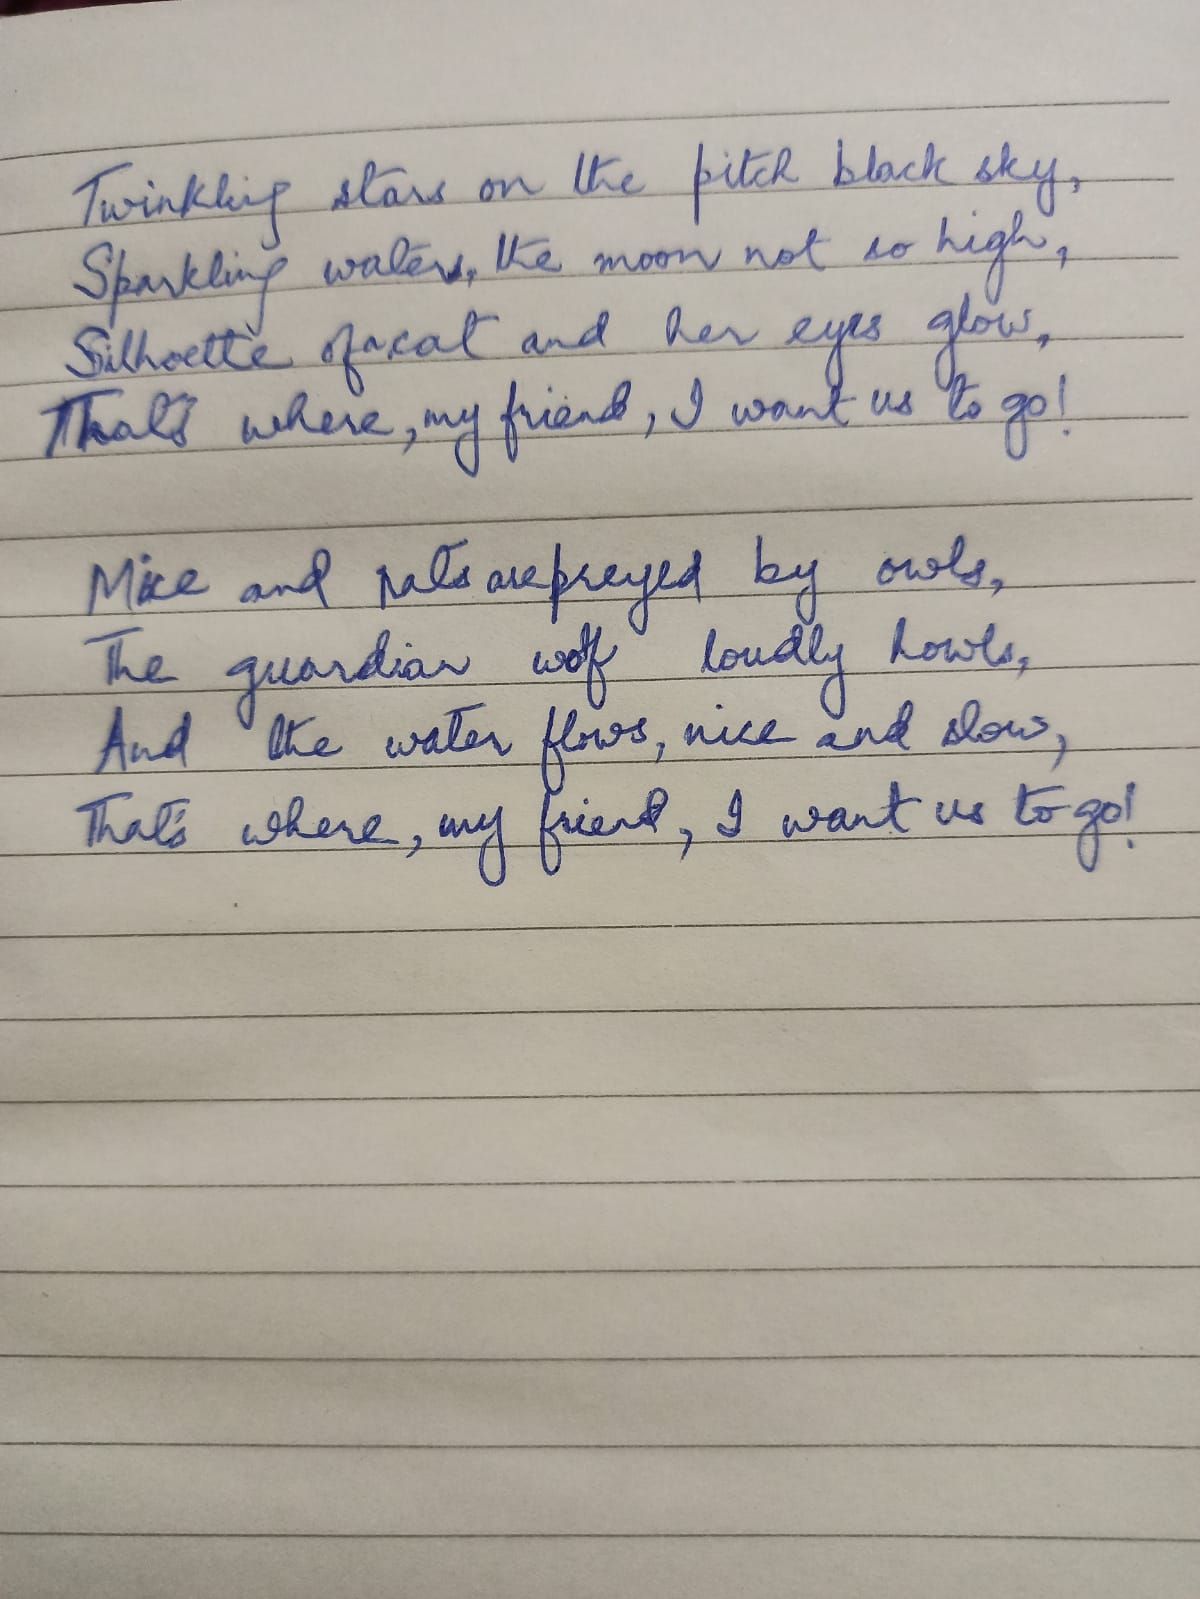 Twinkling stars on the pitch black sky,
Sparkling waters, the moon not so high,
Silhoette of a cat and her eyes glow,
That's where, my friend, I want us to go!
Mice and rats are preyed by owls,
The guardian wolf loudly howls,
And the water flows, nice and slow,
That's where, my friend, I want us to go!